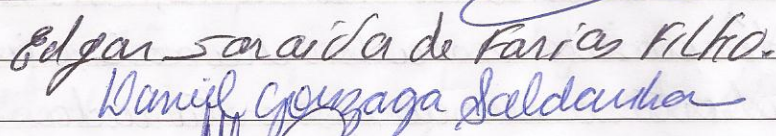 Edgar Saraiva de Farias Filho.
Daniel Gonzaga Saldanha